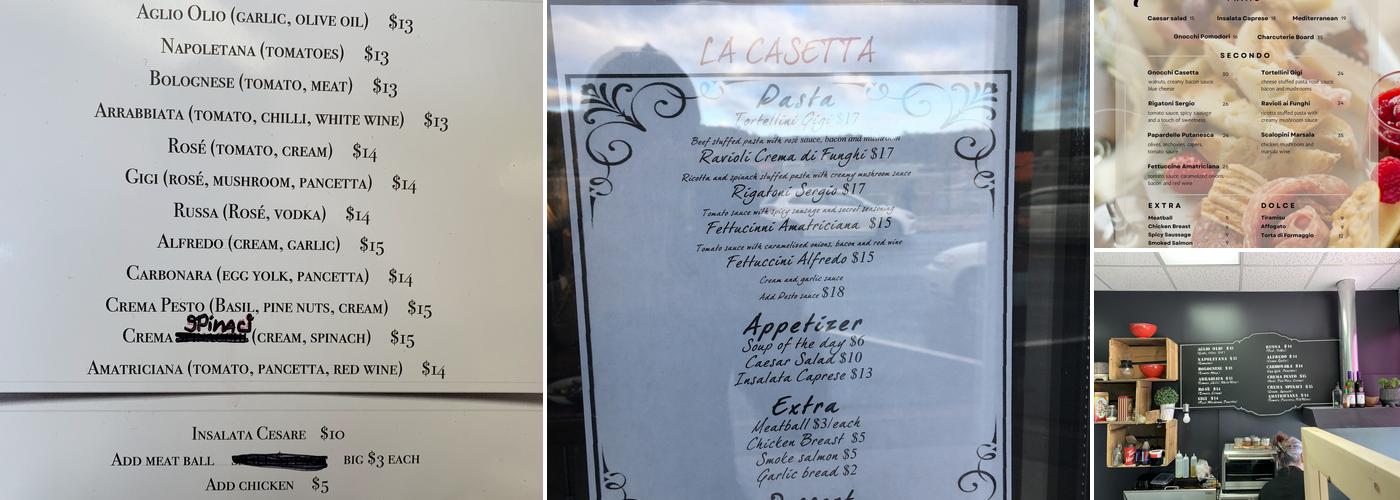 Aglio Olio (garlic, olive oil) $13
Napoletana (tomatoes) $13
Bolognese (tomato, meat) $13
Arrabbiata (tomato, chilli, white wine) $13
Rosé (tomato, cream) $14
Gigi (rosé, mushroom, pancetta) $14
Russa (Rosé, vodka) $14
Alfredo (cream, garlic) $15
Carbonara (egg yolk, pancetta) $14
Crema Pesto (Basil, pine nuts, cream) $15
spinaci
Crema (cream, spinach) $15
Amatriciana (tomato, pancetta, red wine) $14
Insalata Cesare $10
Add meat ball big $3 each
Add chicken $5
LA CASETTA
Pasta
Tortellini Gigi $17
Beef stuffed pasta with rosé sauce, bacon and mushroom
Ravioli Crema di Funghi $17
Ricotta and spinach stuffed pasta with creamy mushroom sauce
Rigatoni Sergio $17
Tomato sauce with spicy sausage and secret seasoning
Fettucinni Amatriciana $15
Tomato sauce with caramelized onions, bacon and red wine
Fettuccini Alfredo $15
Cream and garlic sauce
Add Pesto sauce $18
Appetizer
Soup of the day $6
Caesar Salad $10
Insalata Caprese $13
Extra
Meatball $3/each
Chicken Breast $5
Smoke salmon $5
Garlic bread $2
Caesar salad 15 Insalata Caprese 18 Mediterranean 19
Gnocchi Pomodori 16 Charcuterie Board 35
SECONDO
Gnocchi Casetta 30
walnuts, creamy bacon sauce,
blue cheese
Rigatoni Sergio 26
tomato sauce, spicy sausage
and a touch of sweetness
Papardelle Putanesca 24
olives, anchovies, capers,
tomato sauce
Fettuccine Amatriciana 26
tomato sauce, caramelized onions,
bacon and red wine
Tortellini Gigi 24
cheese stuffed pasta, rosé sauce,
bacon and mushrooms
Ravioli ai Funghi 24
ricotta stuffed pasta with
creamy mushroom sauce
Scalopini Marsala 35
chicken mushroom and
marsala wine
EXTRA
Meatball 5
Chicken Breast
Spicy Saussage
Smoked Salmon
DOLCE
Tiramisu
Affogato
Torta di Formaggio 12
AGLIO OLIO $13
NAPOLETANA $13
BOLOGNESE $13
ARRABBIATA $13
ROSÉ $14
GIGI $14
RUSSA $14
ALFREDO $15
CARBONARA $14
CREMA PESTO $15
CREMA SPINACI $15
AMATRICIANA $14